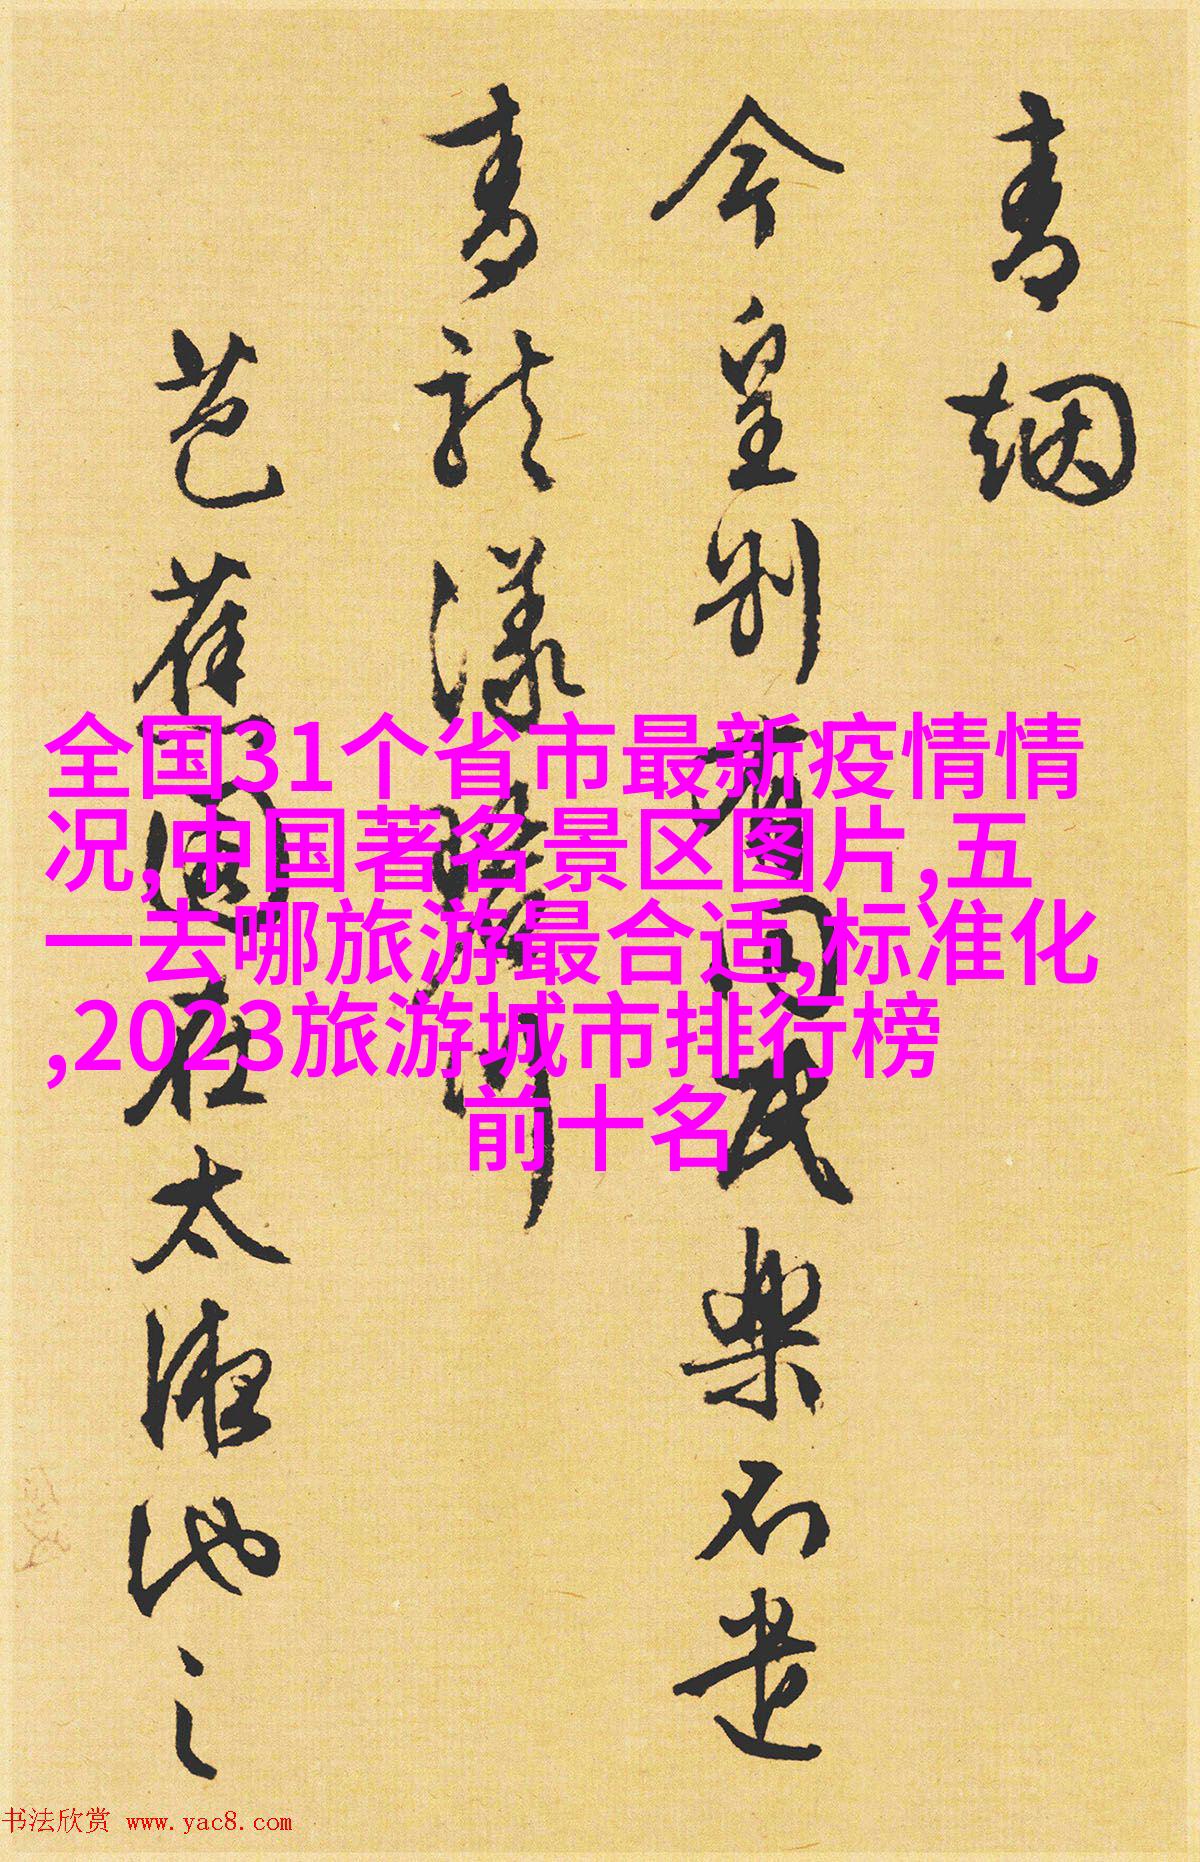 青烟
今皇别有园民乐石遗
青龙漾
芭蕉园在太液池之
全国31个省市最新疫情情
况,中国著名景区图片,五
一去哪旅游最合适,标准化
,2023旅游城市排行榜
前十名
书法欣赏 www.yac8.com